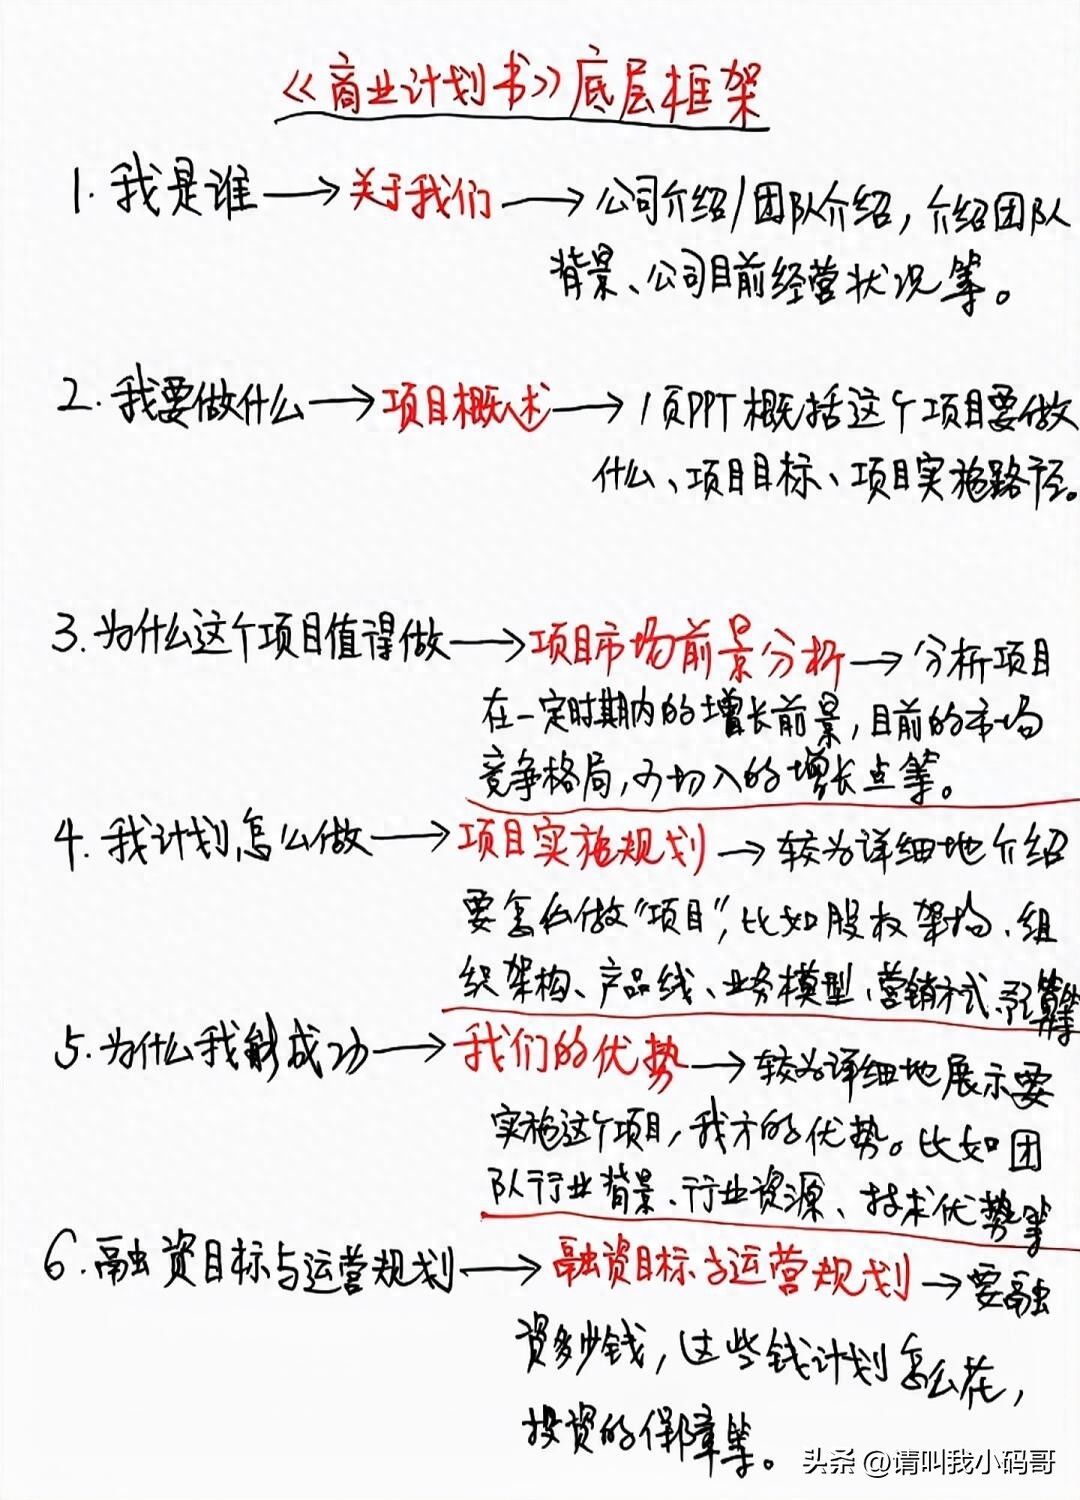 《商业计划书》底层框架
1. 我是谁→关于我们→公司介绍/团队介绍，介绍团队
背景、公司目前经营状况等。
2. 我要做什么→项目概述→1页PPT概括这个项目要做
什么、项目目标、项目实施路径。
3. 为什么这个项目值得做→项目市场前景分析→分析项目
在一定时期内的增长前景，目前的市场
竞争格局，可切入的增长点等。
4. 我计划怎么做→项目实施规划→较为详细地介绍
要怎么做"项目"，比如股权架构、组
织架构、产品线、业务模型、营销方式、预算等
5. 为什么我能成功→我们的优势→较为详细地展示要
实施这个项目，我方的优势。比如团
队行业背景、行业资源、技术优势等
6. 融资目标与运营规划→融资目标与运营规划→要融
资多少钱，这些钱计划怎么花，
投资的保障等。
头条 @请叫我小码哥